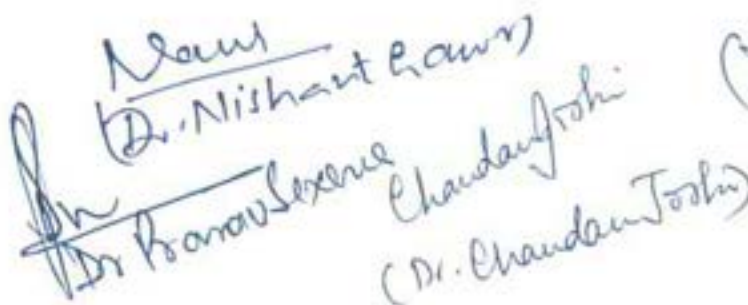 (Dr. Nishant Gaur)
Dr Pranav Sexena
Chandan Joshi
(Dr. Chandan Joshi)